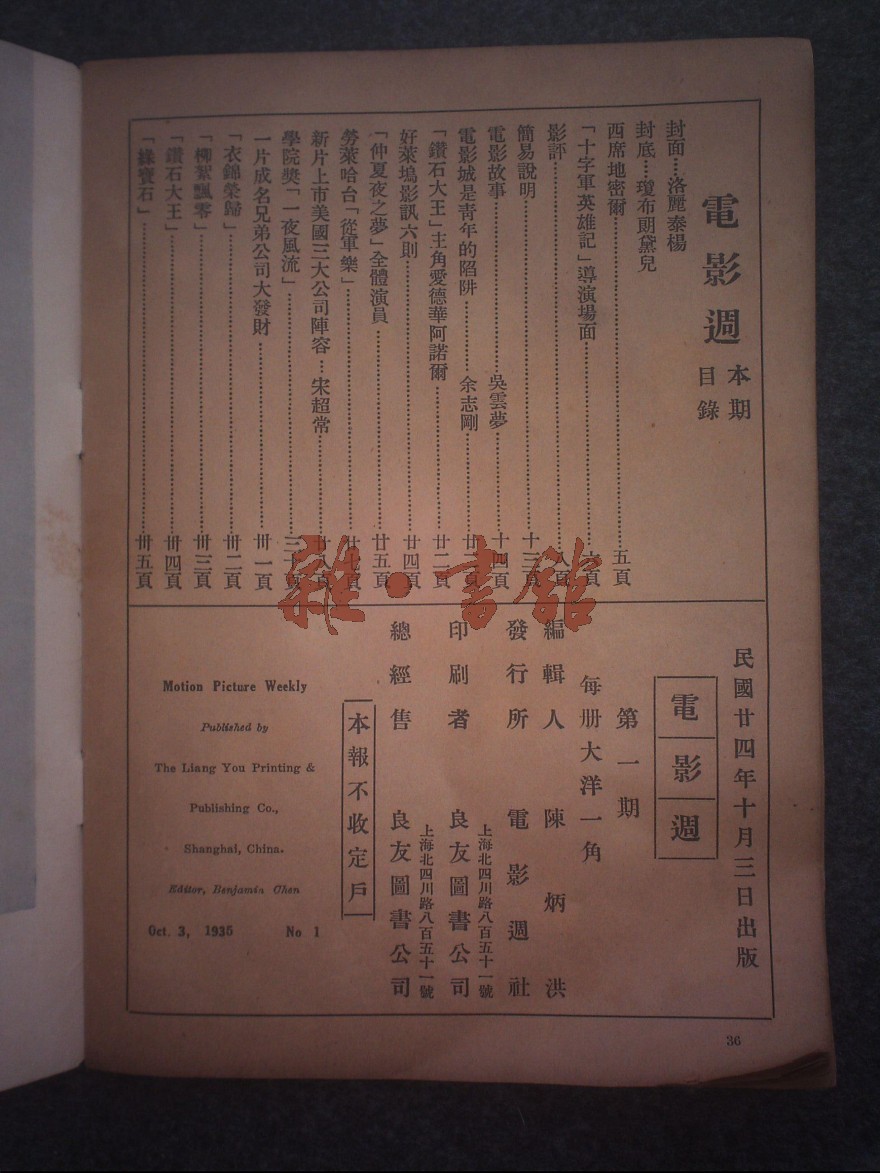 電影週
本期
目錄
封面…洛麗泰楊
封底…瓊布朗黛兒
西席地密爾………五頁
「十字軍英雄記」導演場面………六頁
影評………八頁
簡易說明………十三頁
電影故事………吳雲夢………十四頁
電影城是青年的陷阱………余志剛………廿頁
「鑽石大王」主角愛德華阿諾爾………廿二頁
好萊塢影訊六則………廿四頁
「仲夏夜之夢」全體演員………廿五頁
勞萊哈台「從軍樂」………頁
新片上市美國三大公司陣容…宋超常………廿八頁
學院獎「一夜風流」………頁
一片成名兄弟公司大發財………卅一頁
「衣錦榮歸」………卅二頁
「柳絮飄零」………卅三頁
「鑽石大王」………卅四頁
「綠寶石」………卅五頁
雜·書館
民國廿四年十月三日出版
電影週
第一期
每册大洋一角
編輯人 陳炳洪
發行所 電影週社
上海北四川路八百五十一號
印刷者 良友圖書公司
上海北四川路八百五十一號
總經售 良友圖書公司
本報不收定戶
Motion Picture Weekly
Published by
The Liang You Printing &
Publishing Co.,
Shanghai, China.
Editor, Benjamin Chen
Oct. 3, 1935 No 1
36